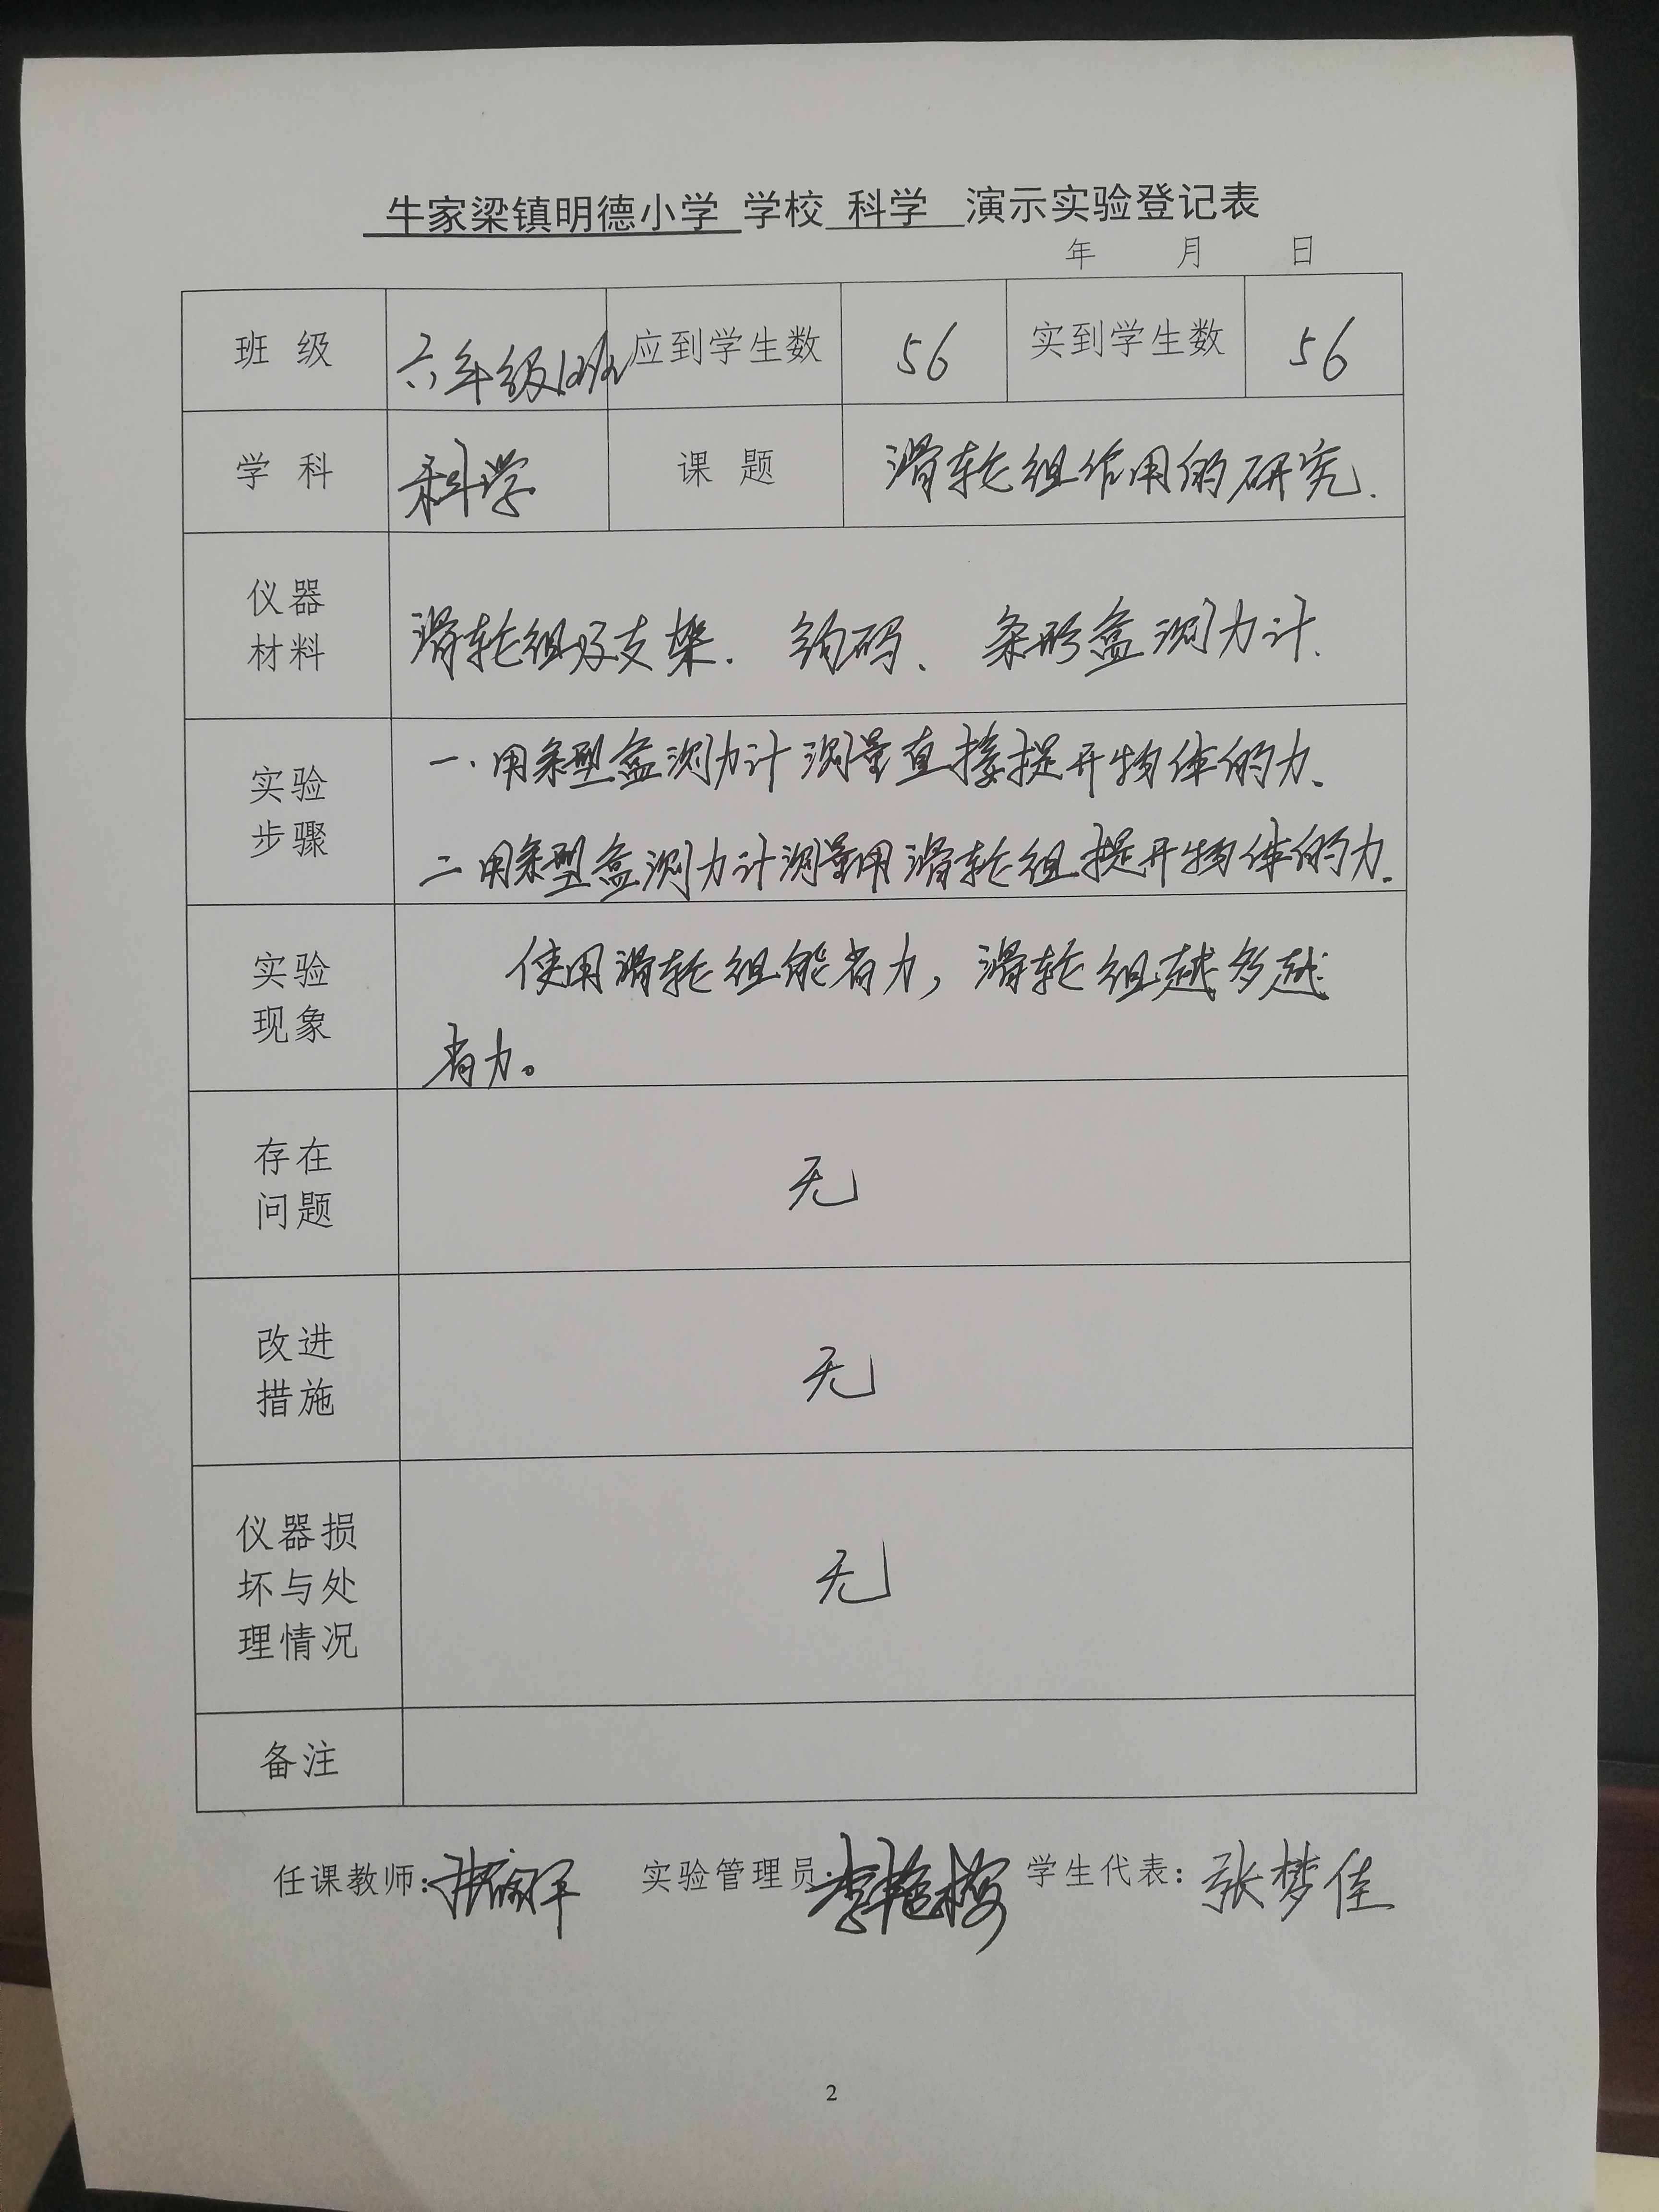 牛家梁镇明德小学 学校 科学 演示实验登记表
年 月 日
班 级 六年级1班 应到学生数 56 实到学生数 56
学 科 科学 课 题 滑轮组作用的研究.
仪器
材料
滑轮组及支架. 钩码、 条形盒测力计.
实验
步骤
一.用条型盒测力计测量直接提升物体的力.
二用条型盒测力计测量用滑轮组提升物体的力.
实验
现象
使用滑轮组能省力，滑轮组越多越
省力。
存在
问题
无
改进
措施
无
仪器损
坏与处
理情况
无
备注
任课教师: 实验管理员: 李艳梅 学生代表: 张梦佳
2